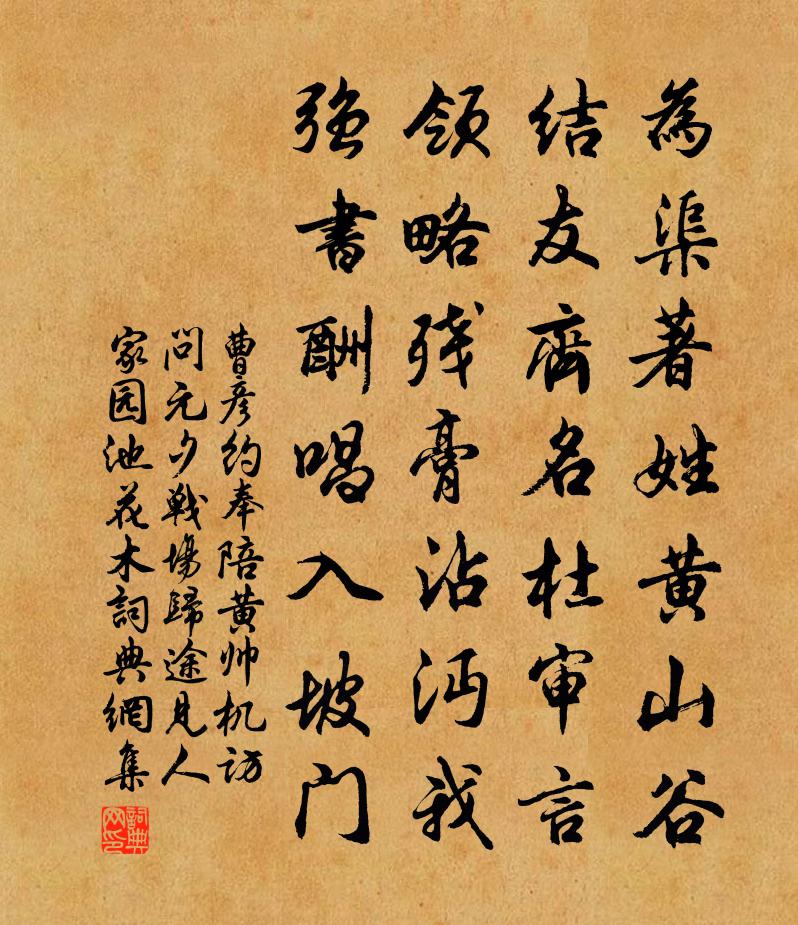 為渠著姓黄山谷
结友齊名杜审言
领略残膏沾沔我
强書酬唱入坡门
曹彦约奉陪黄帅机访
问元夕戦場歸途見人
家园池花木詞典網集
詞典
网印